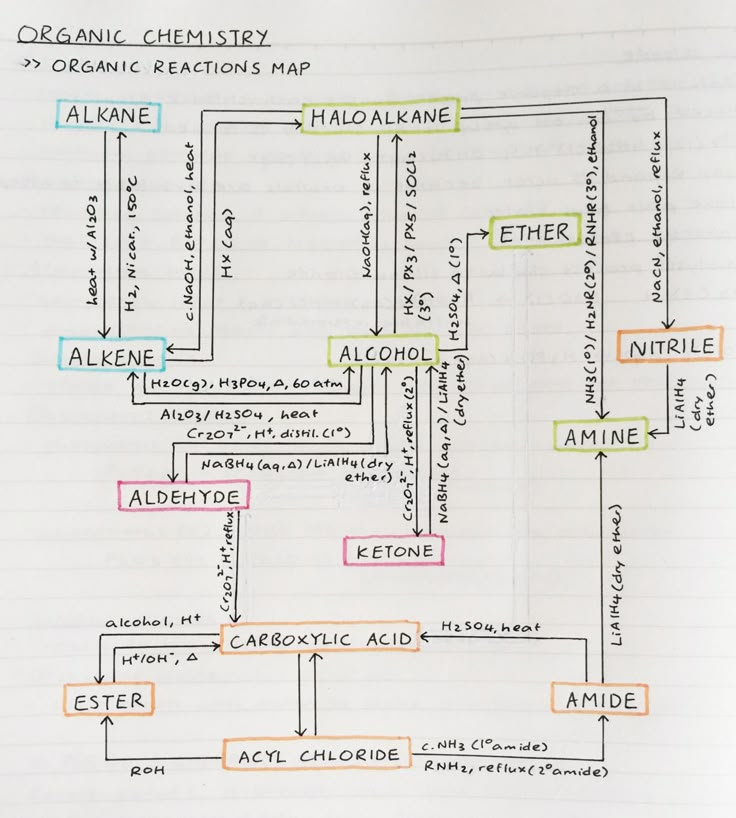 ORGANIC CHEMISTRY
>> ORGANIC REACTIONS MAP
ALKANE
HALOALKANE
heat w/ Al2O3
H2, Ni cat., 150°C
c.NaOH, ethanol, heat
HX (aq)
NaOH(aq), reflux
HX / PX3 / PX5 / SOCl2
(3°)
H2SO4, Δ (1°)
ETHER
NH3(1°) / H2NR(2°) / RNHR(3°), ethanol
NaCN, ethanol, reflux
ALKENE
ALCOHOL
NITRILE
H2O(g), H3PO4, Δ, 60 atm
Al2O3/H2SO4, heat
Cr2O7²⁻, H⁺, distil. (1°)
NaBH4 (aq, Δ) / LiAlH4 (dry
ether)
Cr2O7²⁻, H⁺, reflux (2°)
NaBH4 (aq, Δ) / LiAlH4
(dry ether)
LiAlH4
(dry
ether)
AMINE
ALDEHYDE
KETONE
Cr2O7²⁻, H⁺, reflux
LiAlH4 (dry ether)
alcohol, H⁺
CARBOXYLIC ACID
H2SO4, heat
H⁺/OH⁻, Δ
ESTER
AMIDE
ACYL CHLORIDE
c.NH3 (1° amide)
ROH
RNH2, reflux (2° amide)